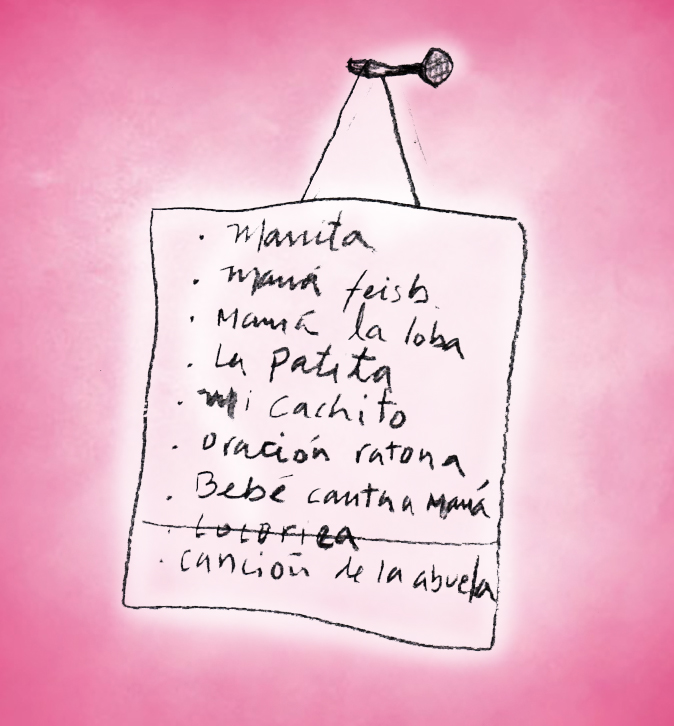 . Mamita
. Mamá feisb.
. Mamá la loba
. La Patita
. Mi Cachito
. Oración ratona
. Bebé canta a Mamá
. canción de la abuela